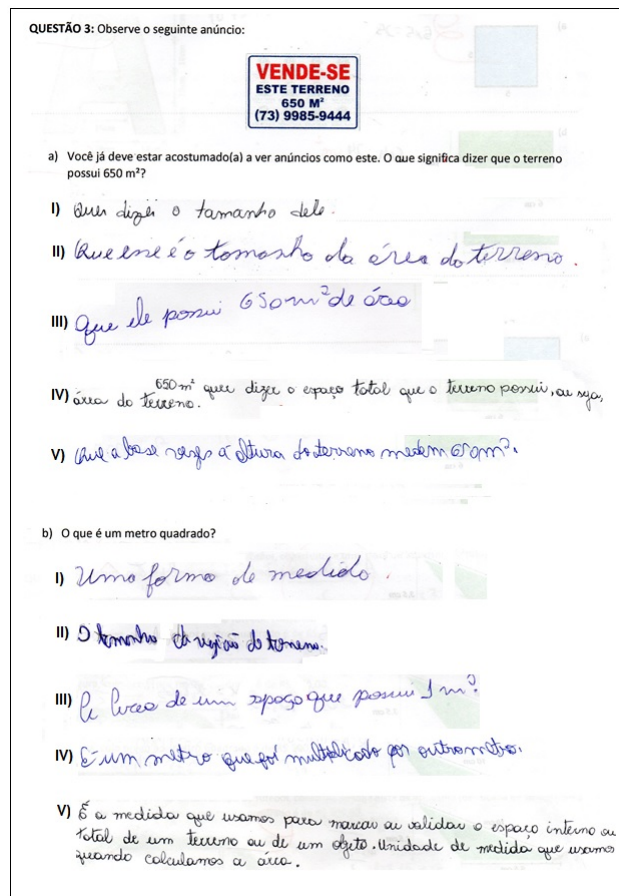 QUESTÃO 3: Observe o seguinte anúncio:
VENDE-SE
ESTE TERRENO
650 M²
(73) 9985-9444
a) Você já deve estar acostumado(a) a ver anúncios como este. O que significa dizer que o terreno
possui 650 m²?
I) Quer dizer o tamanho dele.
II) Que esse é o tamanho da área do terreno.
III) que ele possui 650m² de área
IV) 650m² quer dizer o espaço total que o terreno possui, ou seja,
área do terreno.
V) Que a base vezes a altura do terreno medem 650m².
b) O que é um metro quadrado?
I) Uma forma de medida.
II) O tamanho da região do terreno.
III) É área de um espaço que possui 1 m².
IV) É um metro que foi multiplicado por outro metro.
V) É a medida que usamos para marcar ou validar o espaço interno ou
total de um terreno ou de um objeto. Unidade de medida que usamos
quando calculamos a área.